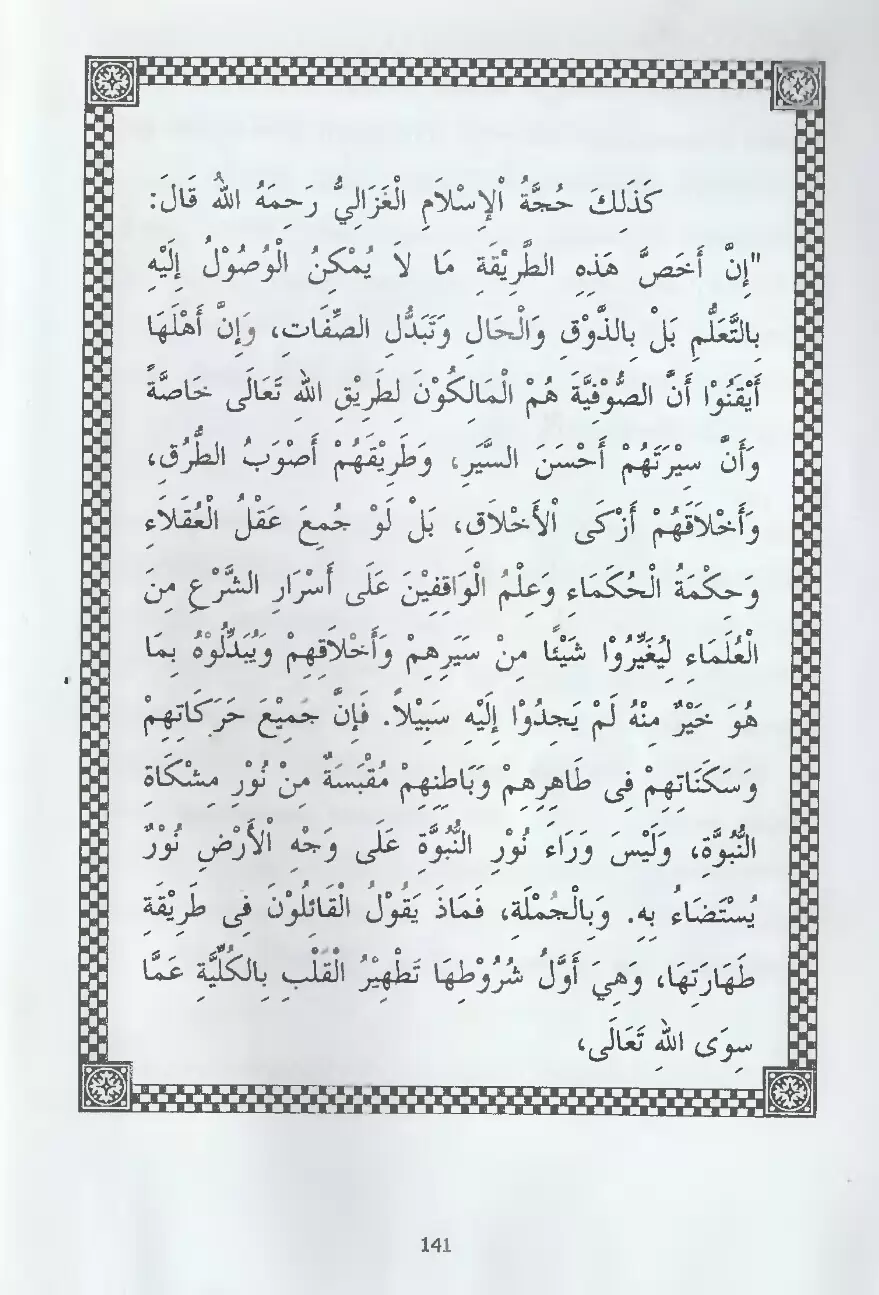 كَذَلِكَ حُجَّةُ اْلإِسْلاَمِ الْغَزَالِيُّ رَحِمَهُ اللهُ قَالَ:
"إِنَّ أَخَصَّ هَذِهِ الطَّرِيْقَةِ مَا لاَ يُمْكِنُ الْوُصُوْلُ إِلَيْهِ
بِالتَّعَلُّمِ بَلْ بِالذَّوْقِ وَالْحَالِ وَتَبَدُّلِ الصِّفَاتِ، وَإِنَّ أَهْلَهَا
أَيْقَنُوْا أَنَّ الصُّوْفِيَّةَ هُمْ الْمَالِكُوْنَ لِطَرِيْقِ اللهِ تَعَالَى خَاصَّةً
وَأَنَّ سِيْرَتَهُمْ أَحْسَنَ السِّيَرِ، وَطَرِيْقَهُمْ أَصْوَبُ الطُّرُقِ،
وَأَخْلاَقَهُمْ أَزْكَى اْلأَخْلاَقِ، بَلْ لَوْ جُمِعَ عَقْلُ الْعُقَلاَءِ
وَحِكْمَةُ الْحُكَمَاءِ وَعِلْمُ الْوَاقِفِيْنَ عَلَى أَسْرَارِ الشَّرْعِ مِنَ
الْعُلَمَاءِ لِيُغَيِّرُوْا شَيْئًا مِنْ سِيَرِهِمْ وَأَخْلاَقِهِمْ وَيُبَدِّلُوْهُ بِمَا
هُوَ خَيْرٌ مِنْهُ لَمْ يَجِدُوْا إِلَيْهِ سَبِيْلاً. فَإِنَّ جَمِيْعَ حَرَكَاتِهِمْ
وَسَكَنَاتِهِمْ فِى ظَاهِرِهِمْ وَبَاطِنِهِمْ مُقْبَسَةٌ مِنْ نُوْرِ مِشْكَاةِ
النُّبُوَّةِ، وَلَيْسَ وَرَاءَ نُوْرِ النُّبُوَّةِ عَلَى وَجْهِ اْلأَرْضِ نُوْرٌ
يُسْتَضَاءُ بِهِ. وَبِالْجُمْلَةِ، فَمَاذَ يَقُوْلُ الْقَائِلُوْنَ فِى طَرِيْقَةِ
طَهَارَتِهَا، وَهِيَ أَوَّلُ شُرُوْطِهَا تَطْهِيْرُ الْقَلْبِ بِالْكُلِّيَّةِ عَمَّا
سِوَى اللهِ تَعَالَى،
141